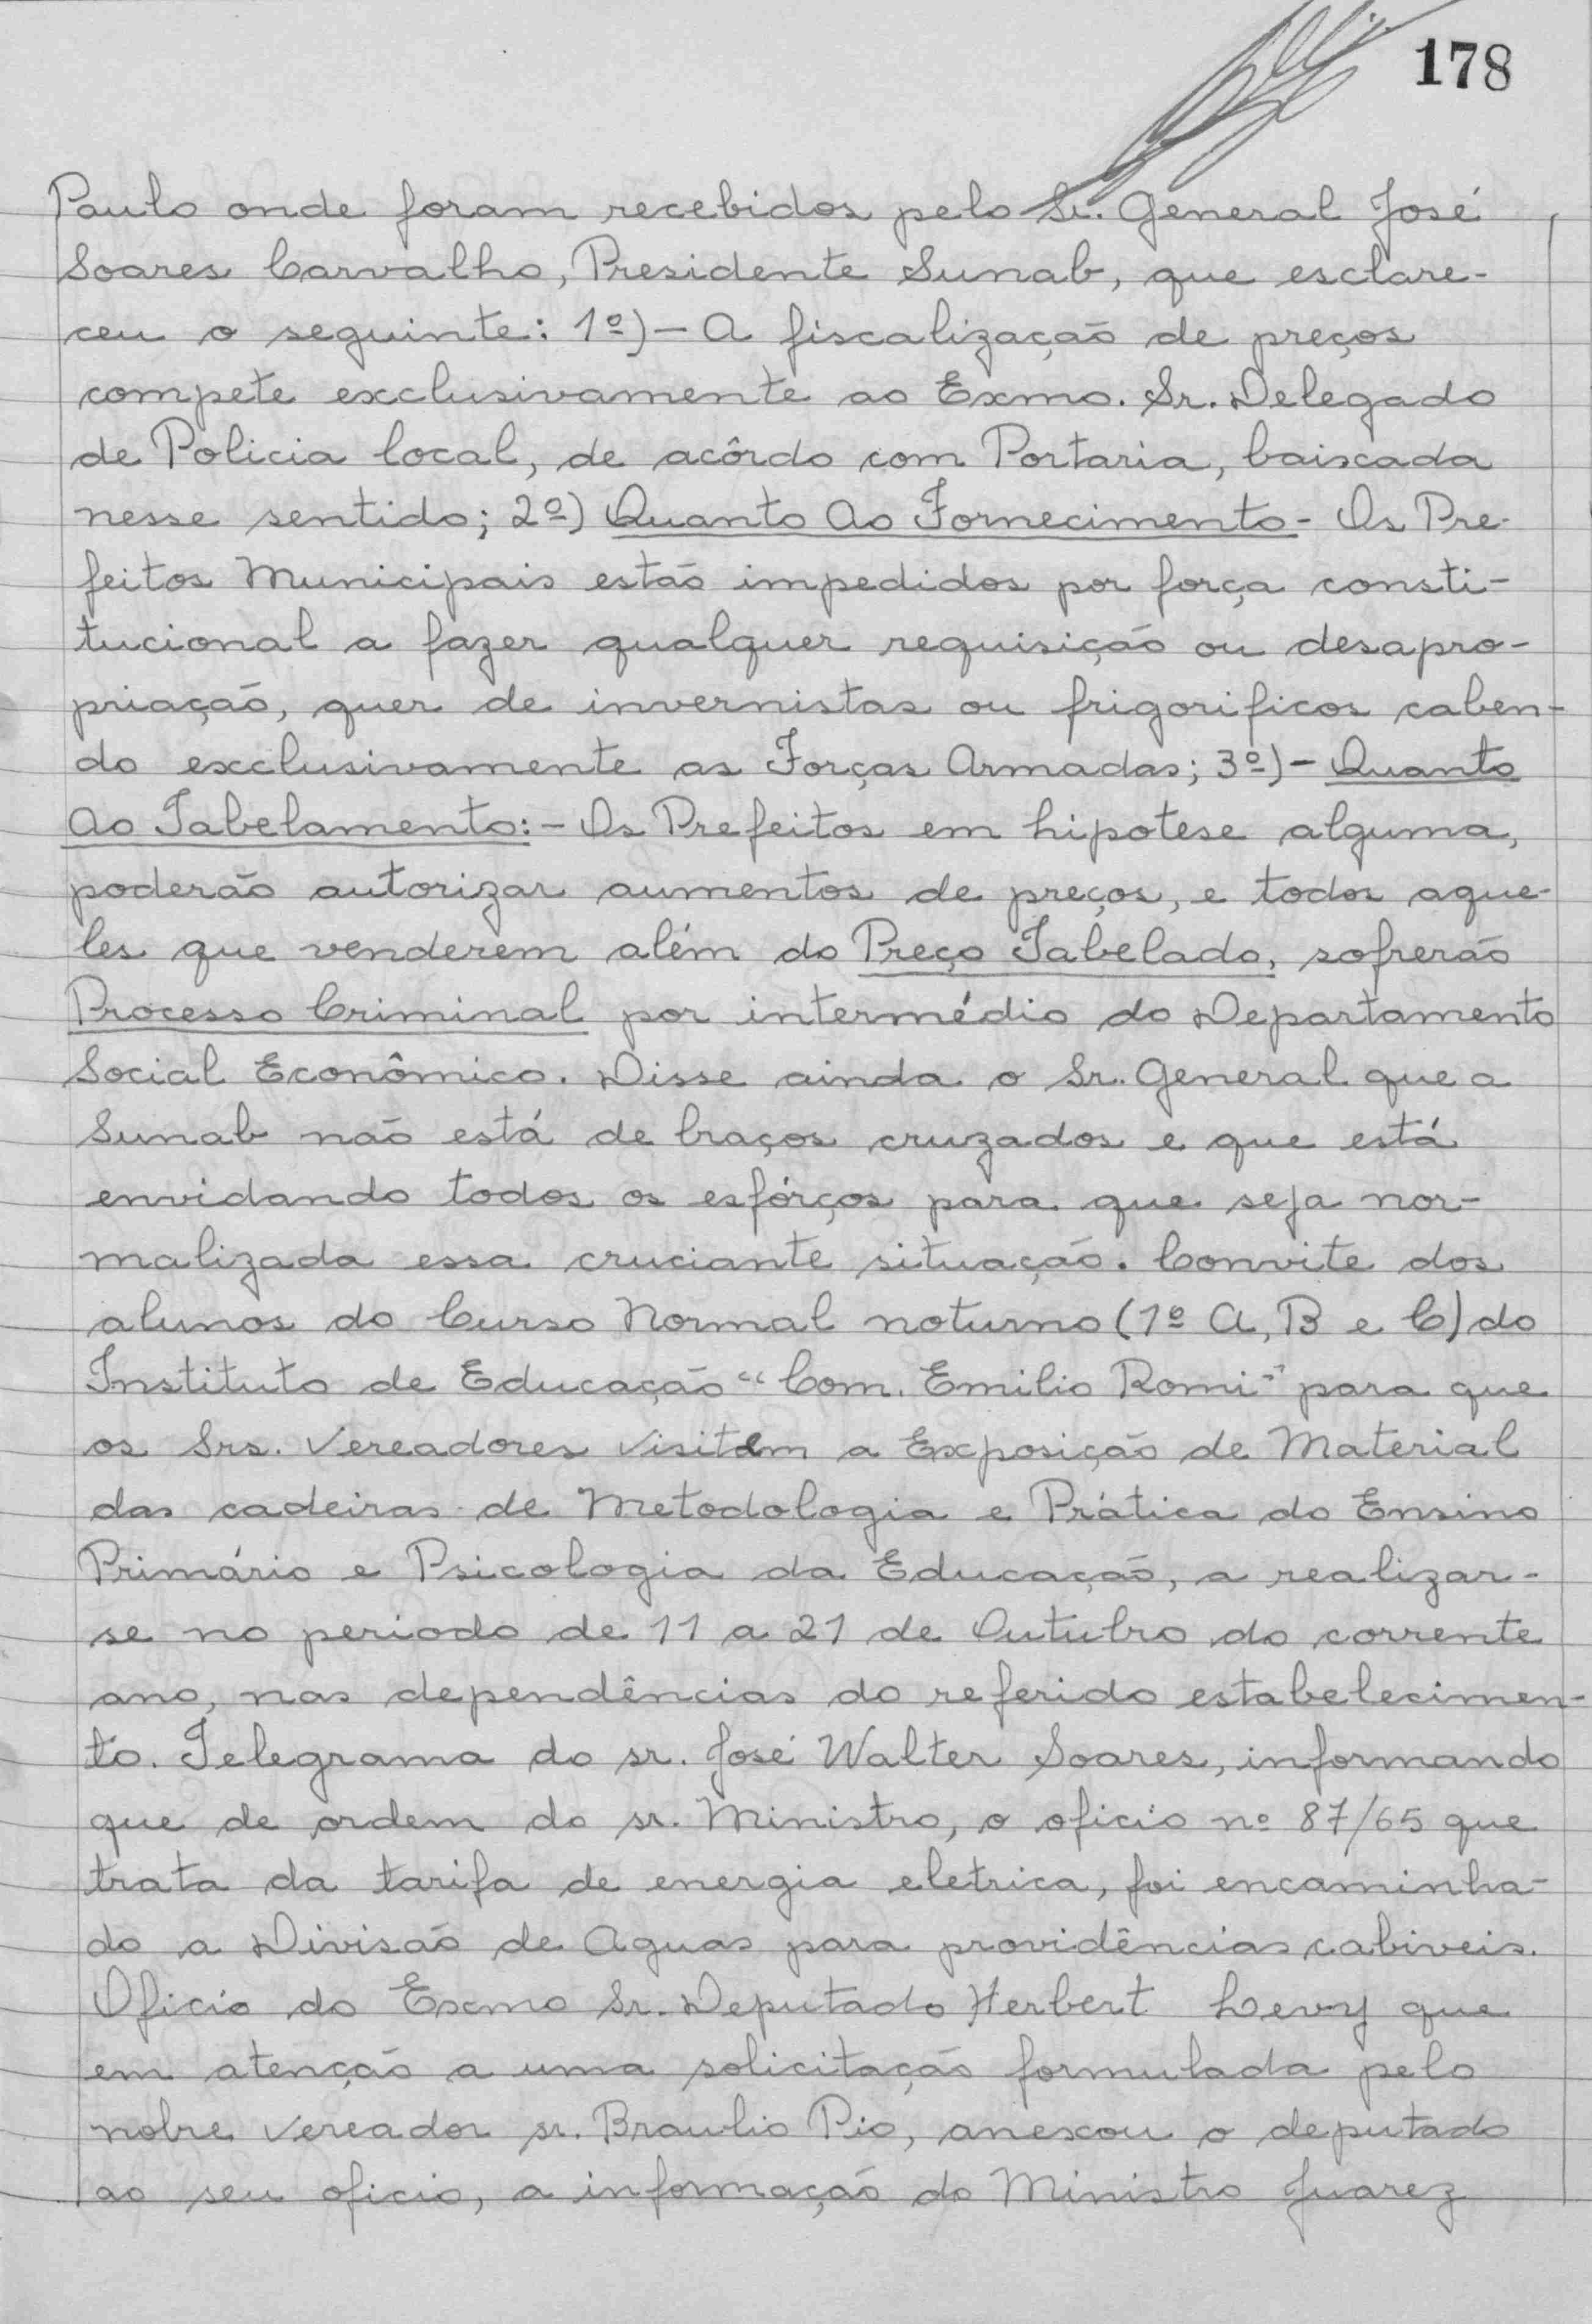 178
Paulo onde foram recebidos pelo Sr. General José
Soares Carvalho, Presidente Sunab, que esclare-
ceu o seguinte: 1º)- A fiscalização de preços
compete exclusivamente ao Exmo. Sr. Delegado
de Policia local, de acôrdo com Portaria, baixada
nesse sentido; 2º) Quanto Ao Fornecimento - Os Pre-
feitos Municipais estão impedidos por força consti-
tucional a fazer qualquer requisição ou desapro-
priação, quer de invernistas ou frigorificos caben-
do exclusivamente as Forças Armadas; 3º)- Quanto
Ao Tabelamento:- Os Prefeitos em hipotese alguma,
poderão autorizar aumentos de preços, e todos aque-
les que venderem além do Preço Tabelado, sofrerão
Processo Criminal por intermédio do Departamento
Social Econômico. Disse ainda o Sr. General que a
Sunab não está de braços cruzados e que está
envidando todos os esfórços para que seja nor-
malizada essa cruciante situação. Convite dos
alunos do Curso Normal noturno (1º A, B e C) do
Instituto de Educação "Com. Emilio Romi" para que
os Srs. Vereadores visitem a Exposição de Material
das cadeiras de Metodologia e Prática do Ensino
Primário e Psicologia da Educação, a realizar-
se no periodo de 11 a 21 de Outubro do corrente
ano, nas dependências do referido estabelecimen-
to. Telegrama do sr. José Walter Soares, informando
que de ordem do sr. Ministro, o oficio nº 87/65 que
trata da tarifa de energia eletrica, foi encaminha-
do a Divisão de Aguas para providências cabiveis.
Oficio do Exmo Sr. Deputado Herbert Levy que
em atenção a uma solicitação formulada pelo
nobre Vereador sr. Braulio Pio, anexou o deputado
ao seu oficio, a informação do Ministro Juarez